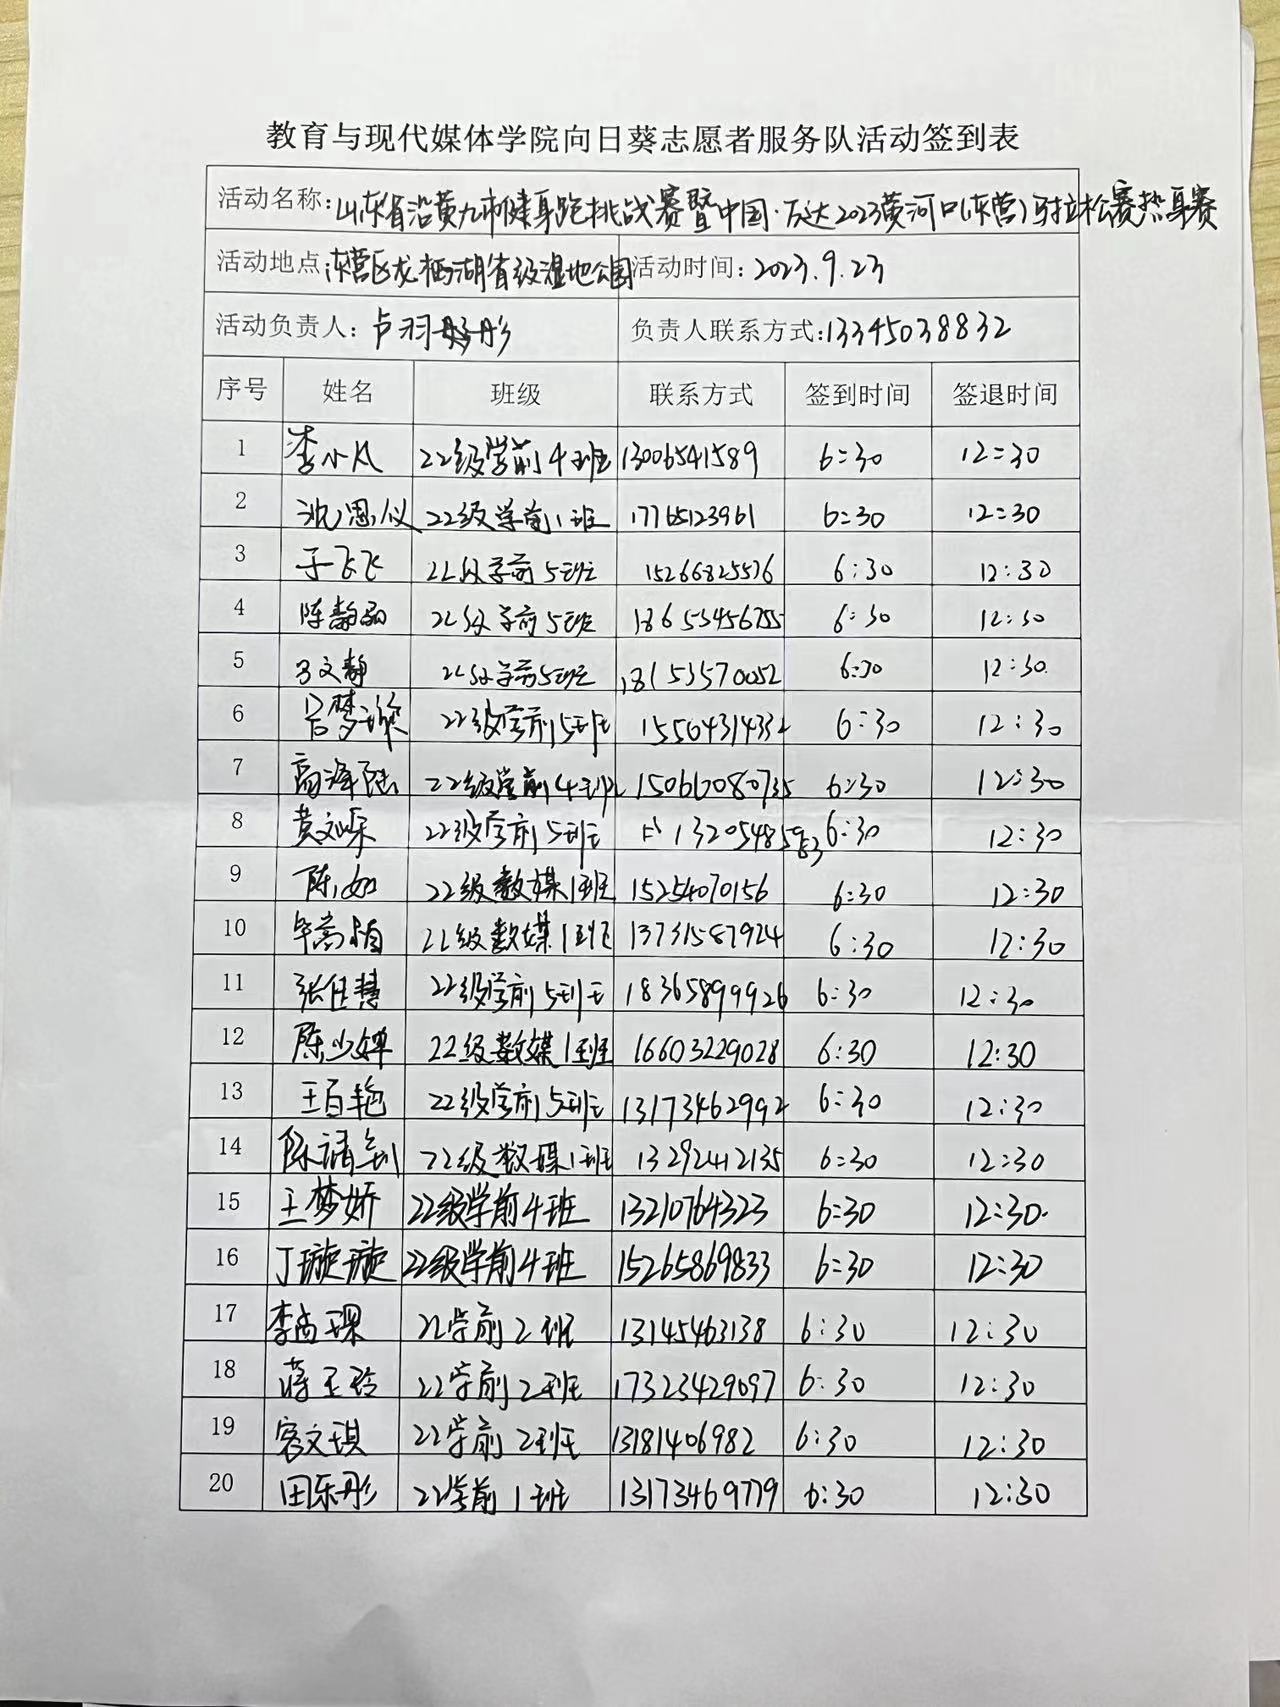 教育与现代媒体学院向日葵志愿者服务队活动签到表
活动名称：山东省沿黄九市健身跑挑战赛暨中国·万达2023黄河口(东营)马拉松赛热身赛
活动地点：东营区龙栖湖省级湿地公园 活动时间：2023.9.23
活动负责人：卢羽彤 负责人联系方式：13345038832
序号 姓名 班级 联系方式 签到时间 签退时间
1 李小凡 22级学前4班 13006541589 6:30 12:30
2 沈思仪 22级学前1班 17765123961 6:30 12:30
3 于飞飞 22级学前5班 15266825576 6:30 12:30
4 陈静 22级学前5班 18653456755 6:30 12:30
5 文静 22级学前5班 18153570052 6:30 12:30
6 吕梦 22级学前5班 15564314332 6:30 12:30
7 高泽陆 22级学前4班 15066080735 6:30 12:30
8 黄 22级学前5班 13205485983 6:30 12:30
9 陈如 22级数媒1班 15254070156 6:30 12:30
10 毕高娟 22级数媒1班 13731587924 6:30 12:30
11 张佳慧 22级学前5班 18365899926 6:30 12:30
12 陈少婵 22级数媒1班 16603229028 6:30 12:30
13 王百艳 22级学前5班 13173462992 6:30 12:30
14 陈请 22级数媒1班 13292412135 6:30 12:30
15 王梦娇 22级学前4班 13210764323 6:30 12:30.
16 丁璇璇 22级学前4班 15265869833 6:30 12:30
17 李尚璟 22学前2班 13145463138 6:30 12:30
18 蒋玉玲 22学前2班 17323429097 6:30 12:30
19 文琪 22学前2班 13181406982 6:30 12:30
20 田乐彤 22学前1班 13173469779 6:30 12:30